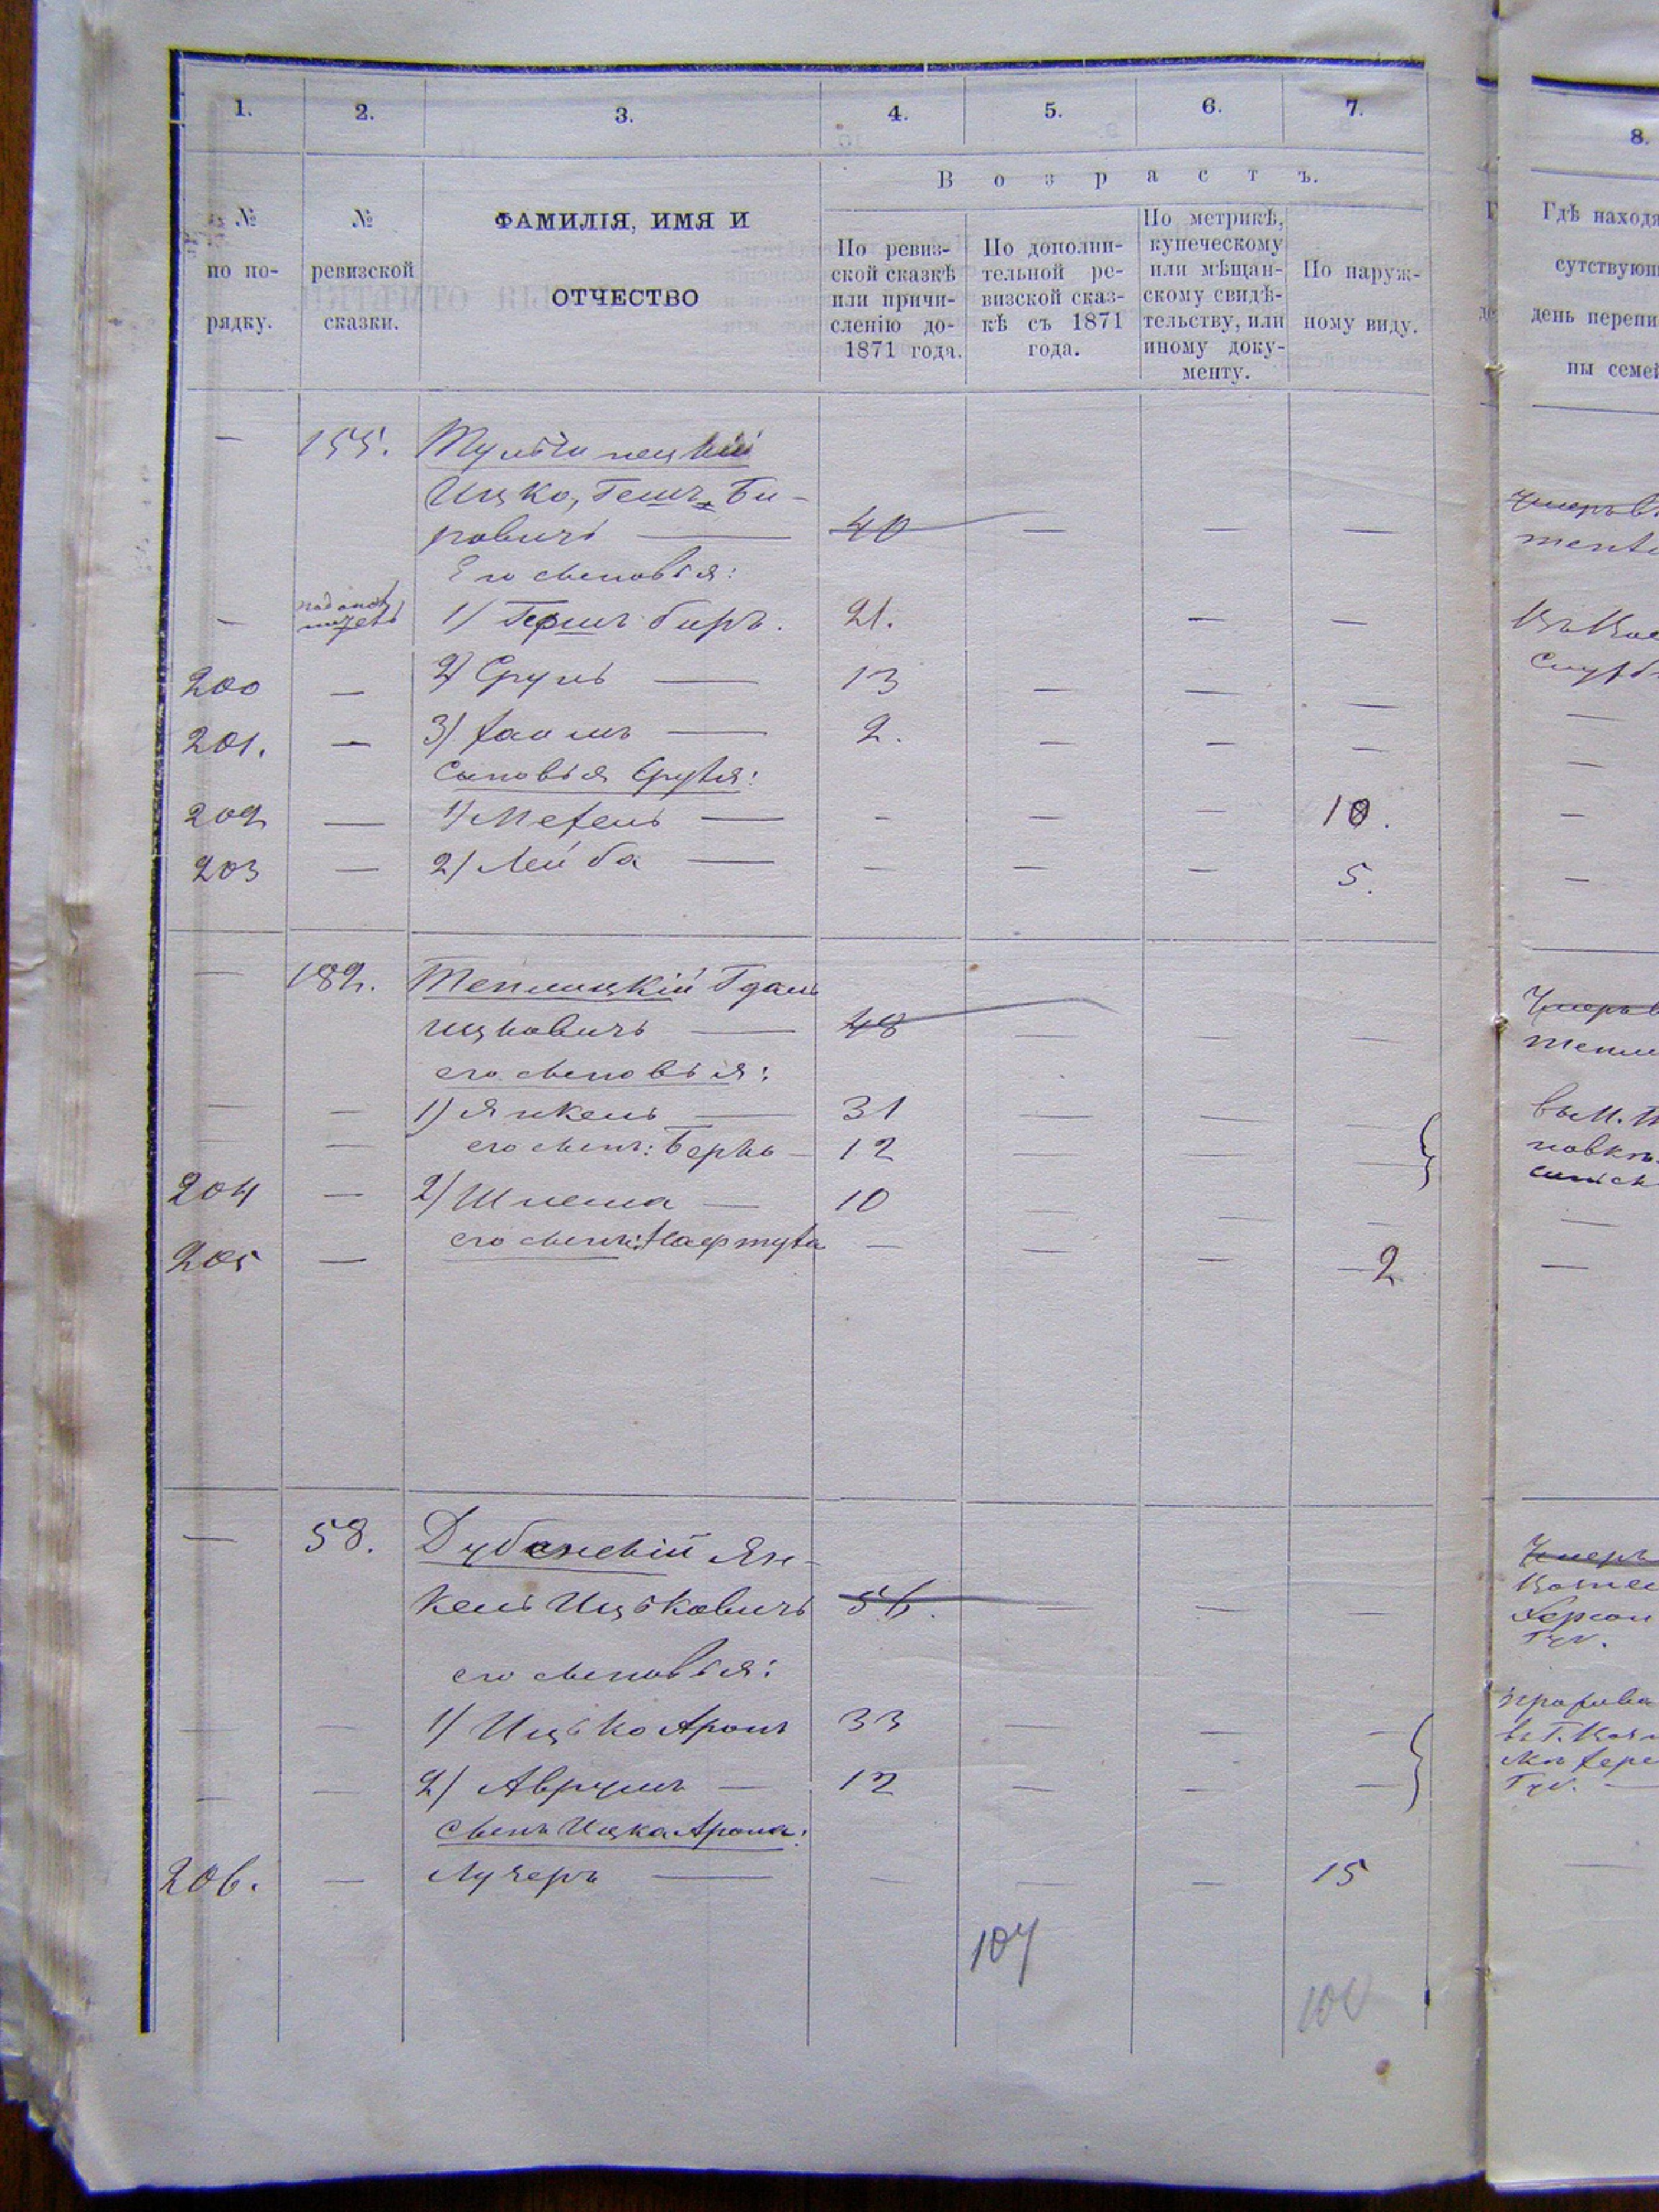 1. 2. 3. 4. 5. 6. 7.
В о з р а с т ъ.
№ по по-рядку.
№ ревизской сказки.
ФАМИЛІЯ, ИМЯ И ОТЧЕСТВО
По ревиз-
ской сказкѣ
или причи-
сленію до-
1871 года.
По дополни-
тельной ре-
визской сказ-
кѣ съ 1871
года.
По метрикѣ,
купеческому
или мѣщан-
скому свидѣ-
тельству, или
иному доку-
менту.
По наруж-
ному виду.
— 155. Тульчинецкій
Ицко, Гешъ Би-
ровичъ — 40 — — —
Его сыновья:
— 1) Гершъ Биръ. 21. — —
200 — 2) Сруль — 13 — — —
201. — 3) Хаимъ — 2. — — —
Сыновья Сруля:
202 — 1) Мехель — — — — 10.
203 — 2) Лейба — — — — 5.
— 182. Теплицкій Гдаль
Ицковичъ — 48 — — —
его сыновья:
— — 1) Янкель — 31 — — —
— — его сынъ: Берко — 12 — — —
204 — 2) Шлема — 10 — — —
205 — его сынъ: Нафтула — — — — 2
— 58. Дубенскій Ян-
кель Ицьковичъ 56. — — —
его сыновья:
— — 1) Ицько Аронъ 33 — — —
— — 2) Аврумъ — 12 — — —
Сынъ Ицка Арона:
206. — Лузеръ — — — — 15
107
8.
Гдѣ находя
сутствующ
день перепи
ны семей